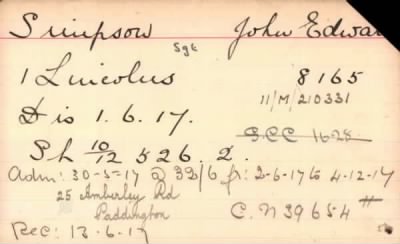 Simpson John Edwar
Sgt
1 Lincolns 8165
11/M/210331
Dis 1.6.17.
G.C.C 1628
Sh 10/12 526.2.
Adm: 30-5-17 @ 32/6 fr: 2-6-17 to 4-12-17
25 Amberley Rd
Paddington C.N 39654
Rec: 13-6-17